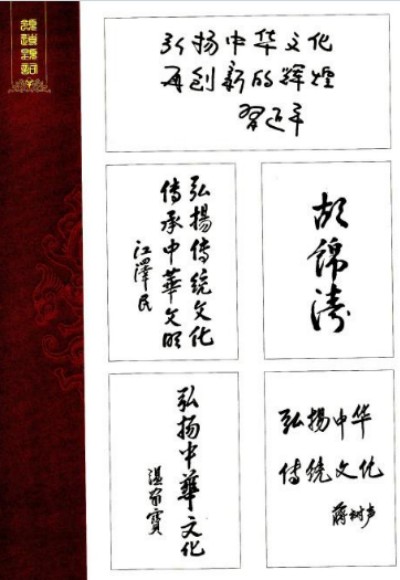 弘扬中华文化
再创新的辉煌
习近平
弘揚传统文化
传承中華文明
江澤民
胡锦涛
弘扬中華文化
温家寳
弘扬中华
传统文化
蒋树声